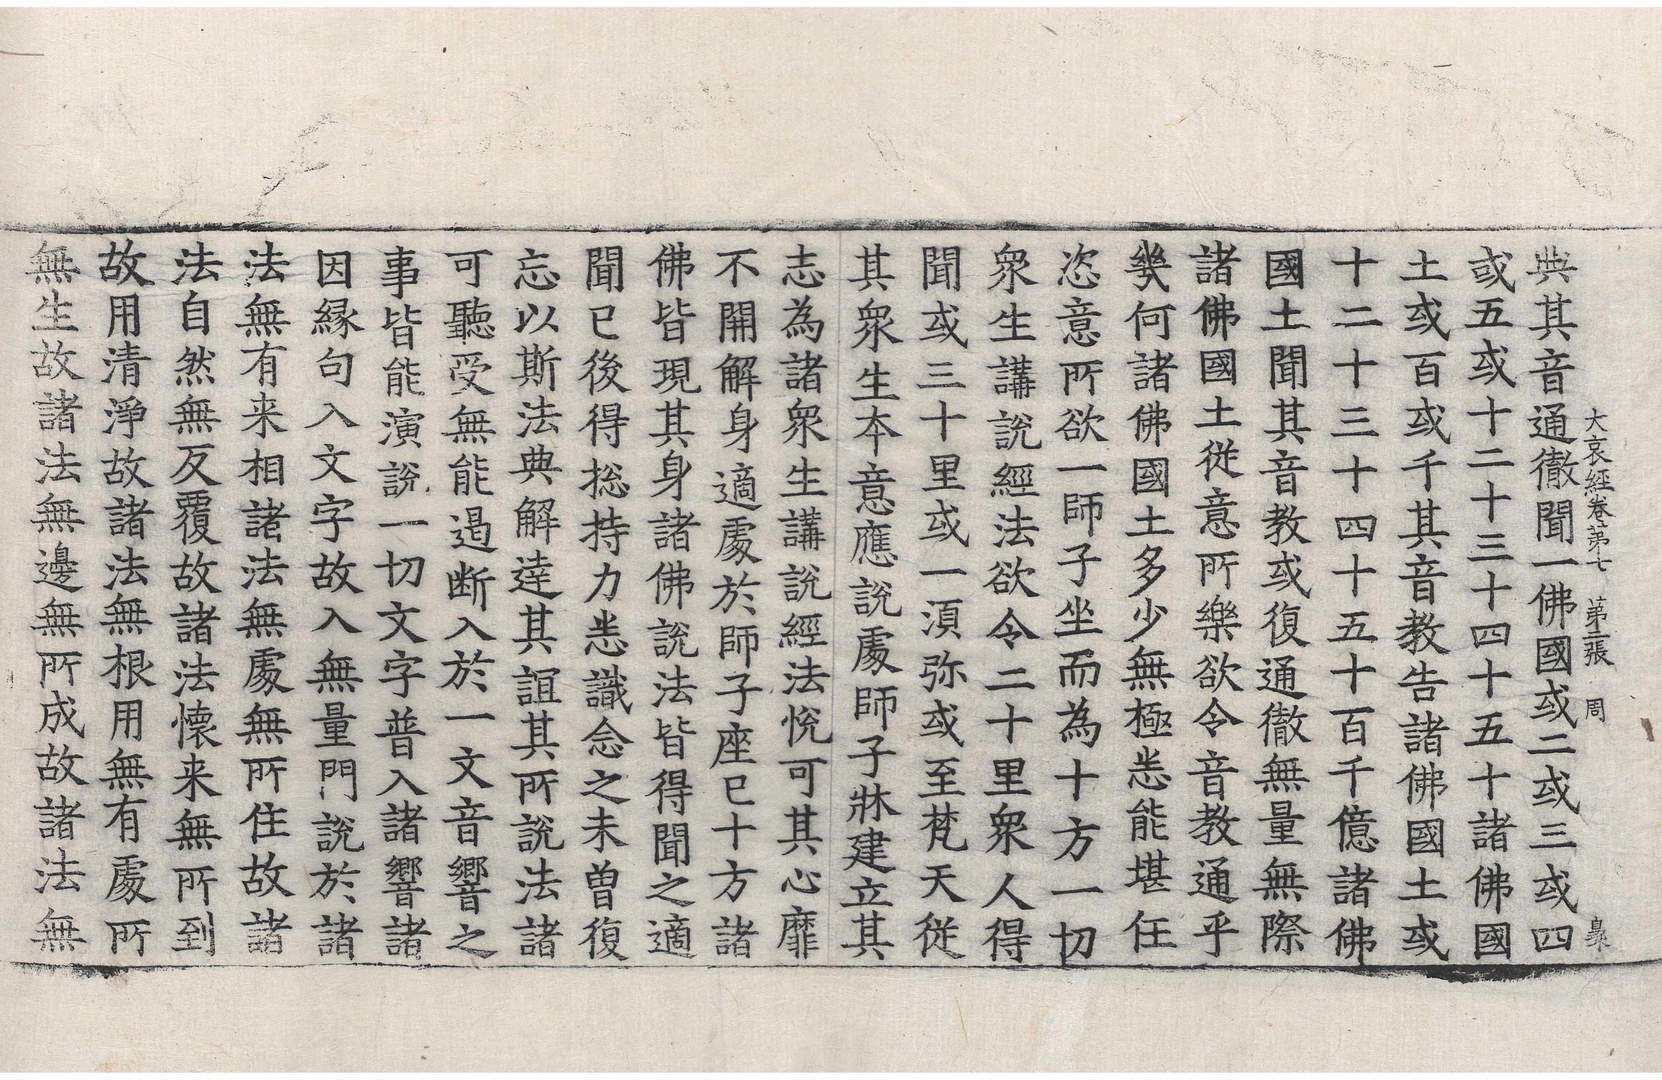 大哀經卷第七　第二張　周
典其音通徹聞一佛國或二或三或四
或五或十二十三十四十五十諸佛國
土或百或千其音教告諸佛國土或
十二十三十四十五十百千億諸佛
國土聞其音教或復通徹無量無際
諸佛國土從意所樂欲令音教通乎
幾何諸佛國土多少無極悉能堪任
恣意所欲一師子坐而為十方一切
眾生講說經法欲令二十里眾人得
聞或三十里或一須弥或至梵天從
其眾生本意應說處師子牀建立其
志為諸眾生講說經法悅可其心靡
不開解身適處於師子座已十方諸
佛皆現其身諸佛說法皆得聞之適
聞已後得捴持力悉識念之未曾復
忘以斯法典解達其誼其所說法諸
可聽受無能遏断入於一文音響之
事皆能演說一切文字普入諸響諸
因縁句入文字故入無量門說於諸
法無有来相諸法無處無所住故諸
法自然無反覆故諸法懷来無所到
故用清淨故諸法無根用無有處所
無生故諸法無邊無所成故諸法無